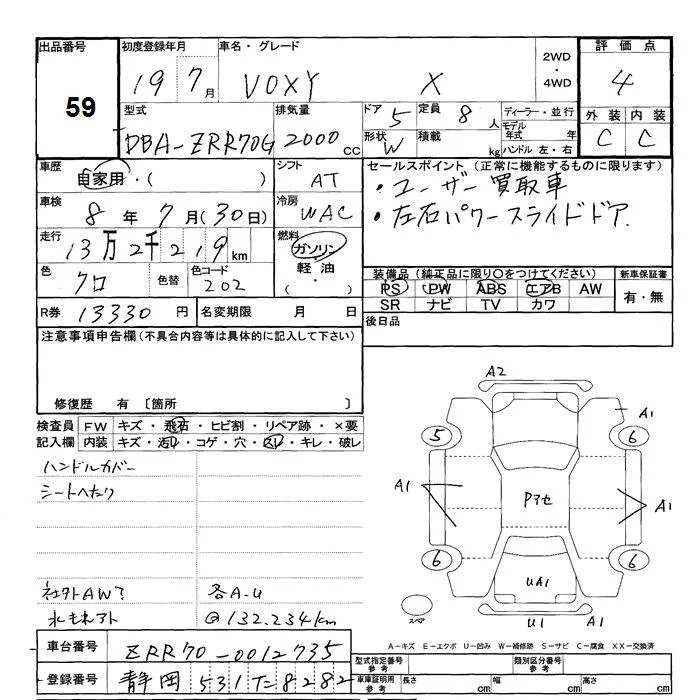 出品番号 59
初度登録年月 19 7月
車名・グレード VOXY X
2WD・4WD
評価点 4
外装 内装
C C
型式 DBA-ZRR70G
排気量 2000cc
ドア 5
形状 W
定員 8人
積載 kg
ディーラー・並行
モデル年式 年
ハンドル 左・右
車歴 自家用・( )
シフト AT
車検 8年7月(30日)
冷房 WAC
走行 13万2千219km
燃料 ガソリン・軽油・( )
色 クロ 色替
色コード 202
R券 13330円
名変期限 月 日
セールスポイント(正常に機能するものに限ります)
・ユーザー買取車
・左右パワースライドドア
装備品(純正品に限り○をつけてください)
PS PW ABS エアB AW
SR ナビ TV カワ
新車保証書
有・無
後日品
注意事項申告欄(不具合内容等は具体的に記入して下さい)
修復歴 有〔箇所 〕
検査員記入欄
FW キズ・飛石・ヒビ割・リペア跡・×要
内装 キズ・汚レ・コゲ・穴・スレ・キレ・破レ
ハンドルカバー
シートヘタリ
社外AW
各A-U
@132.234km
A2
A1
5
6
A1
Pアセ
A1
6
6
UA1
スペア
U1
A1
A-キズ E-エクボ U-凹み W-補修跡 S-サビ C-腐食 XX-交換済
車台番号 ZRR70-0012735
登録番号 静岡 531 8282
型式指定番号 参考
類別区分番号 参考
車庫証明用 参考
長さ cm 幅 cm 高さ cm